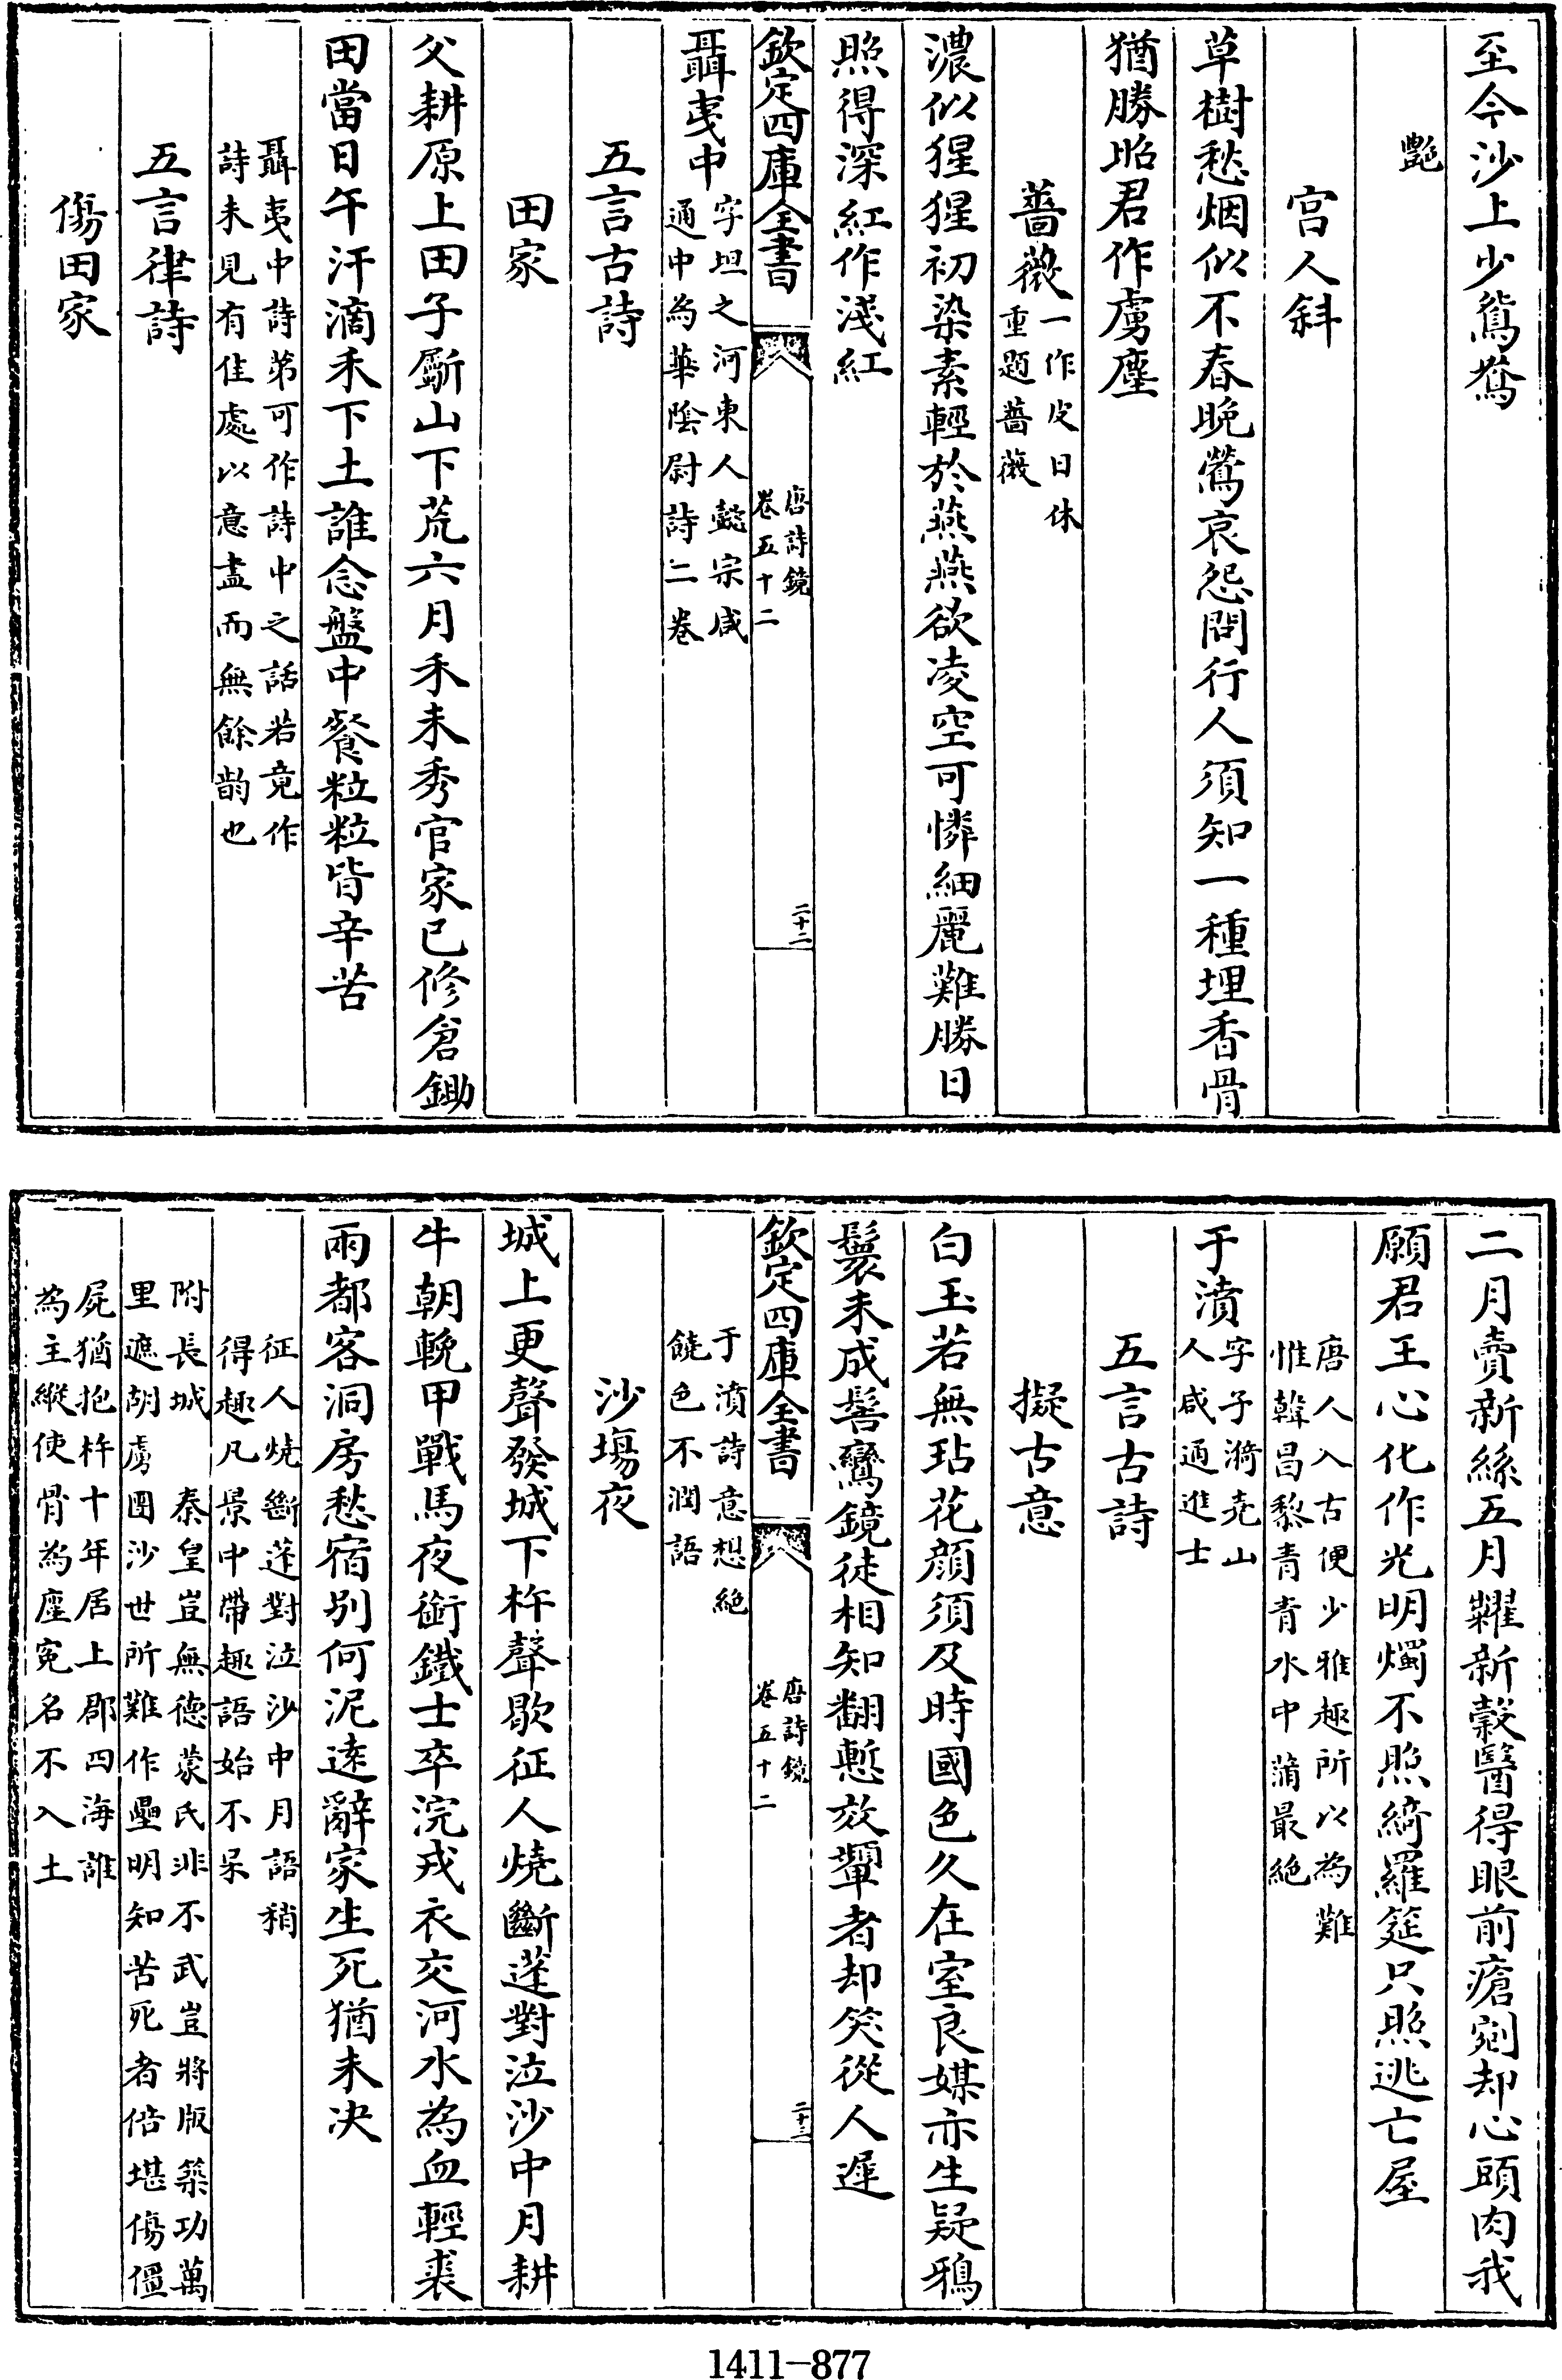 至今沙上少鴛鴦
艷
宫人斜
草樹愁烟似不春晚鶯哀怨問行人須知一種埋香骨
猶勝昭君作虜塵
薔薇一作皮日休
重題薔薇
濃似猩猩初染素輕於燕燕欲凌空可憐細麗難勝日
照得深紅作淺紅
欽定四庫全書
唐詩鏡
卷五十二
二十二
聶夷中字坦之河東人懿宗咸
通中為華陰尉詩二卷
五言古詩
田家
父耕原上田子劚山下荒六月禾未秀官家已修倉鋤
田當日午汗滴禾下土誰念盤中餐粒粒皆辛苦
聶夷中詩第可作詩中之話若竟作
詩未見有佳處以意盡而無餘韵也
五言律詩
傷田家
二月賣新絲五月糶新穀醫得眼前瘡剜却心頭肉我
願君王心化作光明燭不照綺羅筵只照逃亡屋
唐人入古便少雅趣所以為難
惟韓昌黎青青水中蒲最絶
于濆字子漪堯山
人咸通進士
五言古詩
擬古意
白玉若無玷花顔須及時國色久在室良媒亦生疑鴉
鬟未成髻鸞鏡徒相知翻慙效顰者却笑從人遲
欽定四庫全書
唐詩鏡
卷五十二
二十三
于濆詩意想絶
饒色不潤語
沙塲夜
城上更聲發城下杵聲歇征人燒斷蓬對泣沙中月耕
牛朝輓甲戰馬夜銜鐵士卒浣戎衣交河水為血輕裘
兩都客洞房愁宿别何況逺辭家生死猶未决
征人燒斷蓬對泣沙中月語稍
得趣凡景中帶趣語始不呆
附長城 秦皇豈無德蒙氏非不武豈將版築功萬
里遮胡虜團沙世所難作壘明知苦死者倍堪傷僵
屍猶抱杵十年居上郡四海誰
為主縱使骨為塵寃名不入土
1411-877